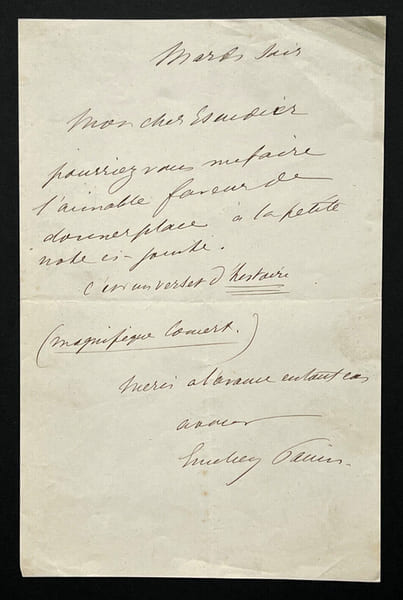 Mardi soir
Mon cher Escudier
pourriez vous me faire
l'aimable faveur de
donner place à la petite
note ci-jointe.
c'est un verset d'histoire
(magnifique Concert.)
Merci à l'avance en tout cas
à vous